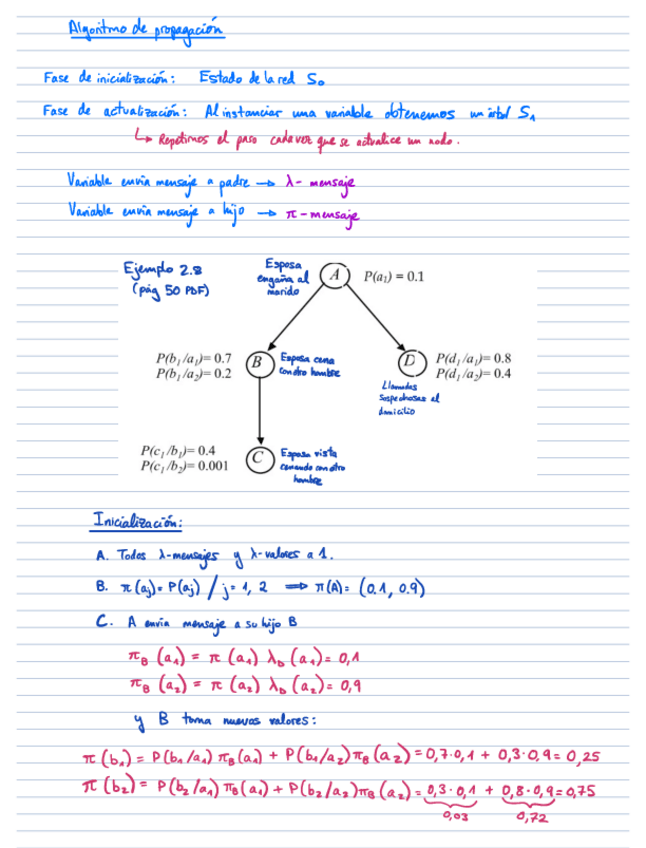 Algoritmo de propagación
Fase de inicialización: Estado de la red S₀
Fase de actualización: Al instanciar una variable obtenemos un árbol S₁
↳ Repetimos el paso cada vez que se actualice un nodo.
Variable envía mensaje a padre → λ- mensaje
Variable envía mensaje a hijo → π - mensaje
Ejemplo 2.8
(pág 50 PDF)
Esposa
engaña al
marido
A
P(a₁) = 0.1
P(b₁/a₁)= 0.7
P(b₁/a₂)= 0.2
B
Esposa cena
con otro hombre
D
P(d₁/a₁)= 0.8
P(d₁/a₂)= 0.4
Llamadas
sospechosas al
domicilio
P(c₁/b₁)= 0.4
P(c₁/b₂)= 0.001
C
Esposa vista
cenando con otro
hombre
Inicialización:
A. Todos λ-mensajes y λ-valores a 1.
B. π(aj)= P(aj) / j= 1, 2 ⟹ π(A)= (0.1, 0.9)
C. A envía mensaje a su hijo B
π_B (a₁) = π (a₁) λ_D (a₁)= 0,1
π_B (a₂) = π (a₂) λ_D (a₂)= 0,9
y B toma nuevos valores:
π (b₁) = P(b₁/a₁) π_B(a₁) + P(b₁/a₂)π_B(a₂)= 0,7·0,1 + 0,3·0,9= 0,25
π (b₂) = P(b₂/a₁) π_B(a₁) + P(b₂/a₂)π_B(a₂)= 0,3·0,1 + 0,8·0,9= 0,75
0,03 0,72